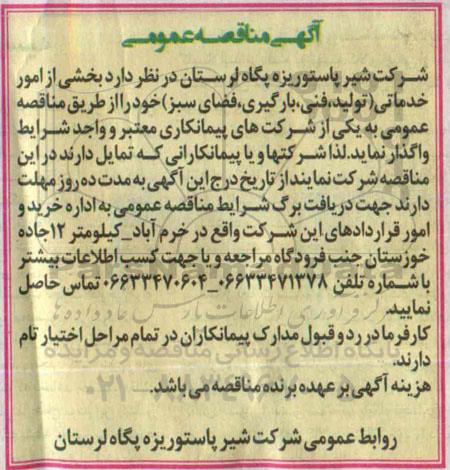 آگهی مناقصه عمومی
شرکت شیر پاستوریزه پگاه لرستان در نظر دارد بخشی از امور
خدماتی(تولید،فنی،بارگیری،فضای سبز)خود را از طریق مناقصه
عمومی به یکی از شرکت های پیمانکاری معتبر و واجد شرایط
واگذار نماید.لذا شرکتها و یا پیمانکارانی که تمایل دارند در این
مناقصه شرکت نمایند از تاریخ درج این آگهی به مدت ده روز مهلت
دارند جهت دریافت برگ شرایط مناقصه عمومی به اداره خرید و
امور قراردادهای این شرکت واقع در خرم آباد_کیلومتر ۱۲جاده
خوزستان جنب فرودگاه مراجعه و یا جهت کسب اطلاعات بیشتر
با شماره تلفن ۰۶۶۳۳۴۷۱۳۷۸_۰۶۶۳۳۴۷۰۶۰۴ تماس حاصل
نمایید.
کارفرما در رد و قبول مدارک پیمانکاران در تمام مراحل اختیار تام
پایگاه اطلاع رسانی مناقصه و مزایده
دارند.
هزینه آگهی بر عهده برنده مناقصه می باشد.
روابط عمومی شرکت شیر پاستوریزه پگاه لرستان